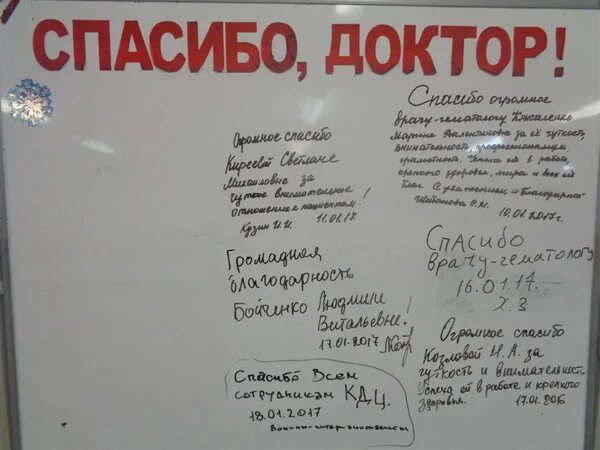 СПАСИБО, ДОКТОР!
Огромное спасибо
Киреевой Светлане
Михайловне за
чуткое внимательное
отношение к пациентам!
Кузин И.И. 11.01.17.
Громадная
благодарность
Бойченко Людмиле
Витальевне!
17.01.2017
Спасибо Всем
сотрудникам КДЦ.
18.01.2017
Воины-интернационалисты
Спасибо огромное
врачу-гематологу
Марине Валентиновне за её чуткость,
внимательность, профессионализм,
грамотность. Успеха ей в работе,
крепкого здоровья, мира и всех ей
благ. С уважением и благодарностью
10.01.2017г.
Спасибо
врачу-гематологу
16.01.17.
Х.З
Огромное спасибо
Козловой Н.А. за
чуткость и внимательность.
Успеха ей в работе и крепкого
здоровья. 17.01.2016